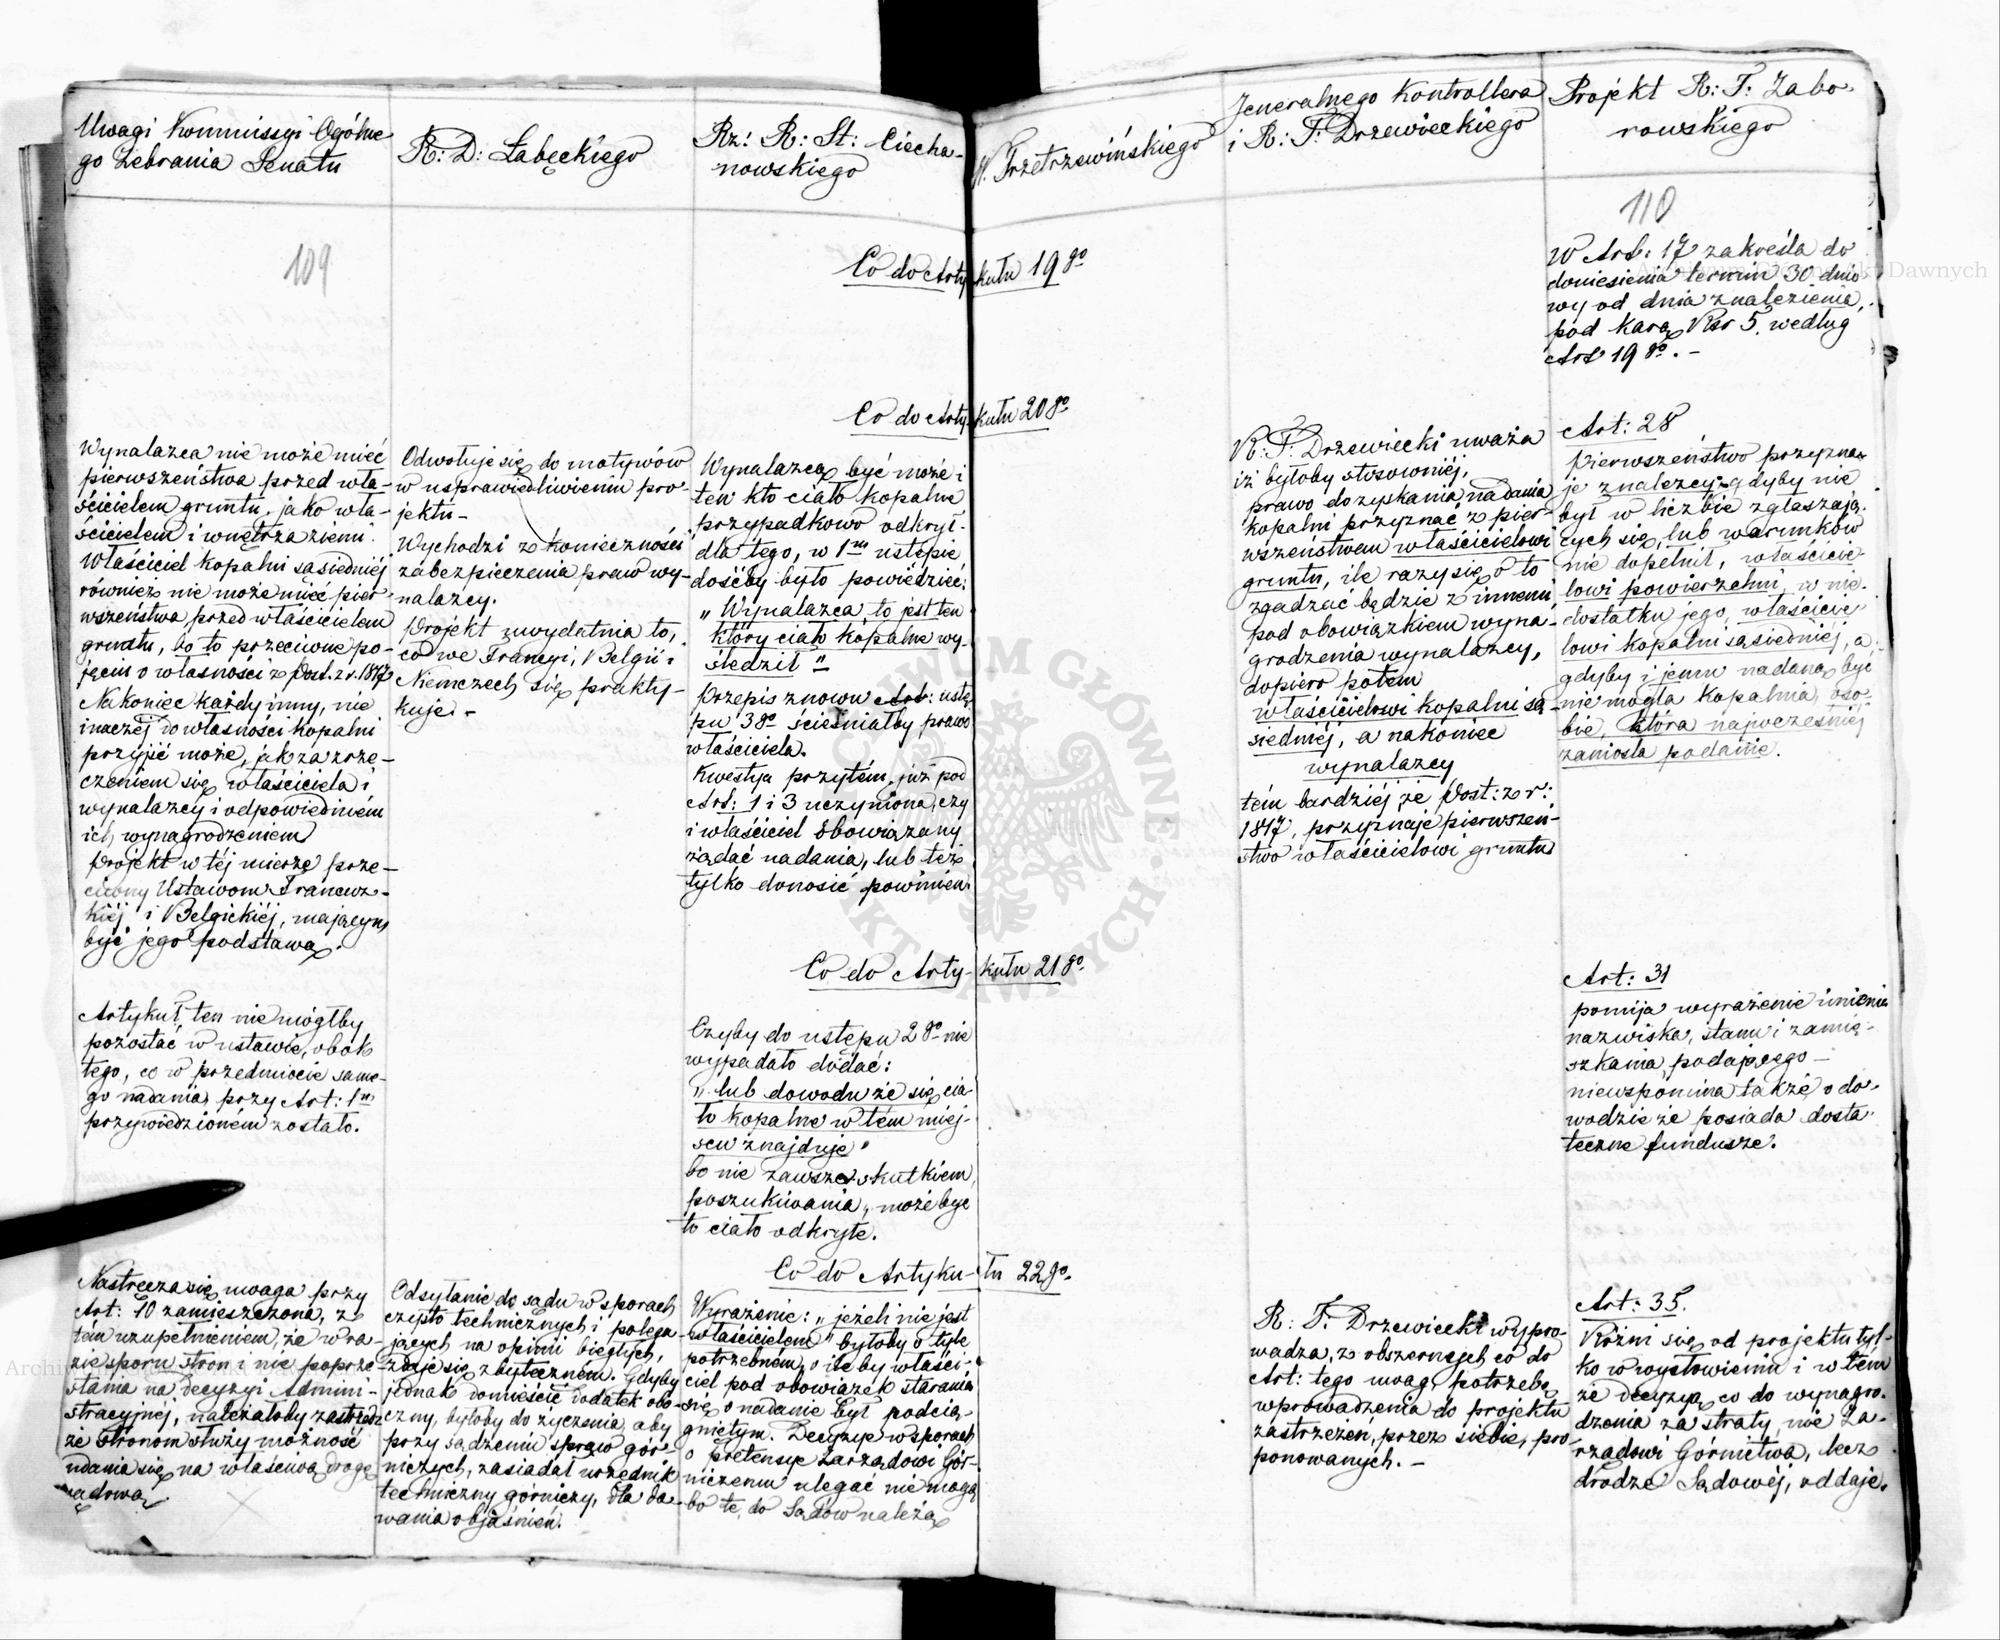 Uwagi Kommissyi Ogólne
go Zebrania Senatu
R: D: Łabęckiego
Rz: R: St: Ciecha-
nowskiego
Przetrzewińskiego
Jeneralnego Kontrollera
i R: T: Drzewieckiego
Projekt R: T: Zabo-
rowskiego
109
110
Co do Artykułu 19go
W Art: 17 zakreśla do
doniesienia termin 30 dnio
wy od dnia znalezienia,
pod karą Rsr 5. według
Art 19go. -
Co do Artykułu 20go
Wynalazca nie może mieć
pierwszeństwa przed wła-
ścicielem gruntu, jako wła-
ścicielem i wnętrza ziemi.
Właściciel kopalni sąsiedniéj
również nie może mieć pier
wszeństwa przed właścicielem
gruntu, bo to przeciwne po-
jęciu o własności z Post. z r. 1817
Nakoniec każdy inny, nie
inaczéj do własności kopalni
przyjść może, jak za zrze-
czeniem się właściciela i
wynalazcy i odpowiedniém
ich wynagrodzeniem
Projekt w téj mierze prze-
ciwny Ustawom Francuz-
kiéj i Belgickiéj, mającym
być jego podstawą.
Odwołuje się do motywów
w usprawiedliwieniu pro-
jektu-
Wychodzi z konieczności
zabezpieczenia praw wy-
nalazcy.
Projekt uwydatnia to,
co we Francyi, Belgii i
Niemczech się prakty-
kuje. -
Wynalazcą być może i
ten kto ciało kopalne
przypadkowo odkrył.
dla tego, w 1m ustępie
dośćby było powiedzieć:
„Wynalazca, to jest ten
który ciało kopalne wy-
śledził"
Przepis znowu Art: ustę
pu 3go ścieśniałby prawo
właściciela.
Kwestya przytém, już pod
Art: 1 i 3 uczyniona, czy
i właściciel obowiązany
żądać nadania, lub téż
tylko donosić powinien.
R: T: Drzewiecki uważa
iż byłoby stosowniéj,
prawo do zyskania nadania
kopalni przyznać z pier-
wszeństwem właścicielowi
gruntu, ile razy się o to
zgadzać będzie z innemi,
pod obowiązkiem wyna-
grodzenia wynalazcy,
dopiero potem
właścicielowi kopalni są-
siedniéj, a nakoniec
wynalazcy
tém bardziéj, że Post: z r:
1817, przyznaje pierwszeń-
stwo właścicielowi gruntu
Art: 28
Pierwszeństwo przyzna
je znalezcy, gdyby nie
był w liczbie zgłaszają-
cych się, lub warunków
nie dopełnił, właścicie-
lowi powierzchni, w nie-
dostatku jego, właścicie
lowi kopalni sąsiedniéj, a
gdyby i jemu nadaną być
nie mogła kopalnia, oso-
bie, która najwcześniéj
zaniosła podanie.
Co do Artykułu 21go
Artykuł ten nie mógłby
pozostać w ustawie, obok
tego, co w przedmiocie same-
go nadania, przy Art: 1m
przypowiedzioném zostało.
Czyby do ustępu 2go nie
wypadało dodać:
„lub dowodu że się cia-
ło kopalne w tém miej-
scu znajduje"
bo nie zawsze skutkiem
poszukiwania, może być
to ciało odkryte.
Art: 31
pomija wyrażenie imienia
nazwiska, stanu i zamie-
szkania podającego -
niewspomina także o do-
wodzie że posiada dosta
teczne fundusze.
Co do Artykułu 22go.
Nastręcza się uwaga przy
Art: 10 zamieszczona, z
tém uzupełnieniem, że w ra-
zie sporu stron i nie poprze-
stania na Decyzyi Admini-
stracyjnéj, należałoby zastrzedz
że stronom służy możność
udania się na właściwą drogę
sądową.
Odsyłanie do sądu w sporach
czysto technicznych i polega
jących na opinii biegłych,
zdaje się zbyteczném. Gdyby
jednak domieścić dodatek obo-
czny, byłoby do życzenia, aby
przy sądzeniu spraw gór-
niczych, zasiadał urzędnik
techniczny górniczy, dla da-
wania objaśnień.
Wyrażenie: „jeżeli nie jest
właścicielem" byłoby o tyle
potrzebném, o ile by właści-
ciel pod obowiązek starania
się o nadanie był podcią-
gniętym. Decyzye w sporach
o pretensye Zarządowi Gór-
niczemu ulegać nie mogą
bo te, do Sądów należą
R: T: Drzewiecki wypro-
wadza, z obszernych co do
Art: tego uwag, potrzebę
wprowadzenia do projektu
zastrzeżeń, przez siebie, pro-
ponowanych. -
Art: 35.
Różni się od projektu tyl-
ko w wysłowieniu i w tém
że decyzyą co do wynagro-
dzenia za straty, nie Za-
rządowi Górnictwa, lecz
drodze Sądowéj, oddaje.